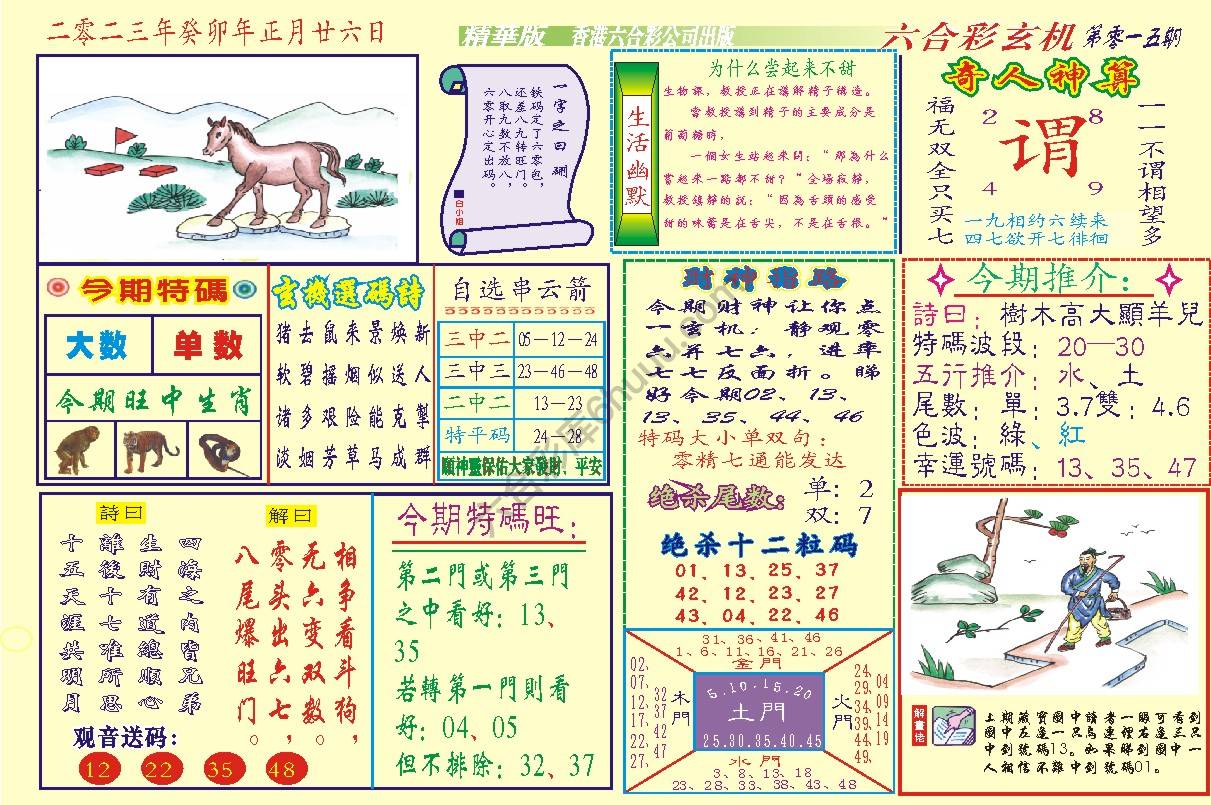 二零二三年癸卯年正月廿六日
精華版 香港六合彩公司出版
六合彩玄机 第零一五期
一字之曰：硼
鉄码定了六零包，
还差八九转旺门。
八取九数不放八，
六零开心定出码。
白小姐
生活幽默
为什么尝起来不甜
生物課，教授正在講解精子構造。
當教授講到精子的主要成分是
葡萄糖時，
一個女生站起來問：“那為什么
嘗起來一路都不甜？“全場寂静，
教授鎮静的説：“因為舌頭的感受
甜的味蕾是在舌尖，不是在舌根。“
奇人神算
福无双全只买七
2 8
谓
4 9
一一不谓相望多
一九相约六续来
四七欲开七徘徊
今期特碼
大数 单数
今期旺中生肖
玄機選碼詩
猪去鼠来景焕新
软碧摇烟似送人
诸多艰险能克掣
淡姻芳草马成群
自选串云箭
三中二 05－12－24
三中三 23－46－48
二中二 13－23
特平码 24－28
願神靈保佑大家發財、平安
财神指路
今期财神让你点
一玄机：静观零
六并七六，进率
七七反面折。睇
好今期02、13、
13、35、44、46
特码大小单双句：
零精七通能发达
绝杀尾数：
单：2
双：7
绝杀十二粒码
01、13、25、37
42、12、23、27
43、04、22、46
今期推介：
詩曰：樹木高大顯羊兒
特碼波段：20—30
五行推介：水、土
尾數：單：3.7雙：4.6
色波：綠、紅
幸運號碼：13、35、47
詩曰
四海之内皆兄弟
生財有道總順心
離後十七难所思
十五天涯共明月
解曰
相争看斗狗，
无六变双数，
零头出六七，
八尾爆旺门。
观音送码：
12 22 35 48
今期特碼旺：
第二門或第三門
之中看好：13、
35
若轉第一門則看
好：04、05
但不排除：32、37
31、36、41、46
1、6、11、16、21、26
金門
02、07、12、17、22、27、
32、37、42、47
木門
5.10.15.20
土門
25.30.35.40.45
火門
24、29、34、39、44、49、
04、09、14、19
水門
3、8、13、18
23、28、33、38、43、48
解畫佬
上期藏寶圖中讀者一眼可看到
圖中左邊一只鳥連裡右邊三只
中到號碼13。如果睇到圖中一
人相信不難中到號碼01。